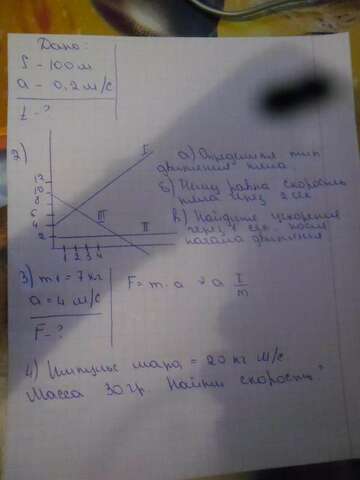 Дано:
S - 100 м
a - 0,2 м/с
t - ?
2)
I
12
10
8
6
4
2
III
II
1 2 3 4
а) Определите тип
движения тела.
б) Чему равна скорость
тела через 2 сек
в) Найдите ускорение
через 1 сек. после
начала движения
3) m1 = 7 кг
a = 4 м/с
F - ?
F = m · a
4) Импульс шара = 20 кг м/с
Масса 30 гр. Найти скорость?